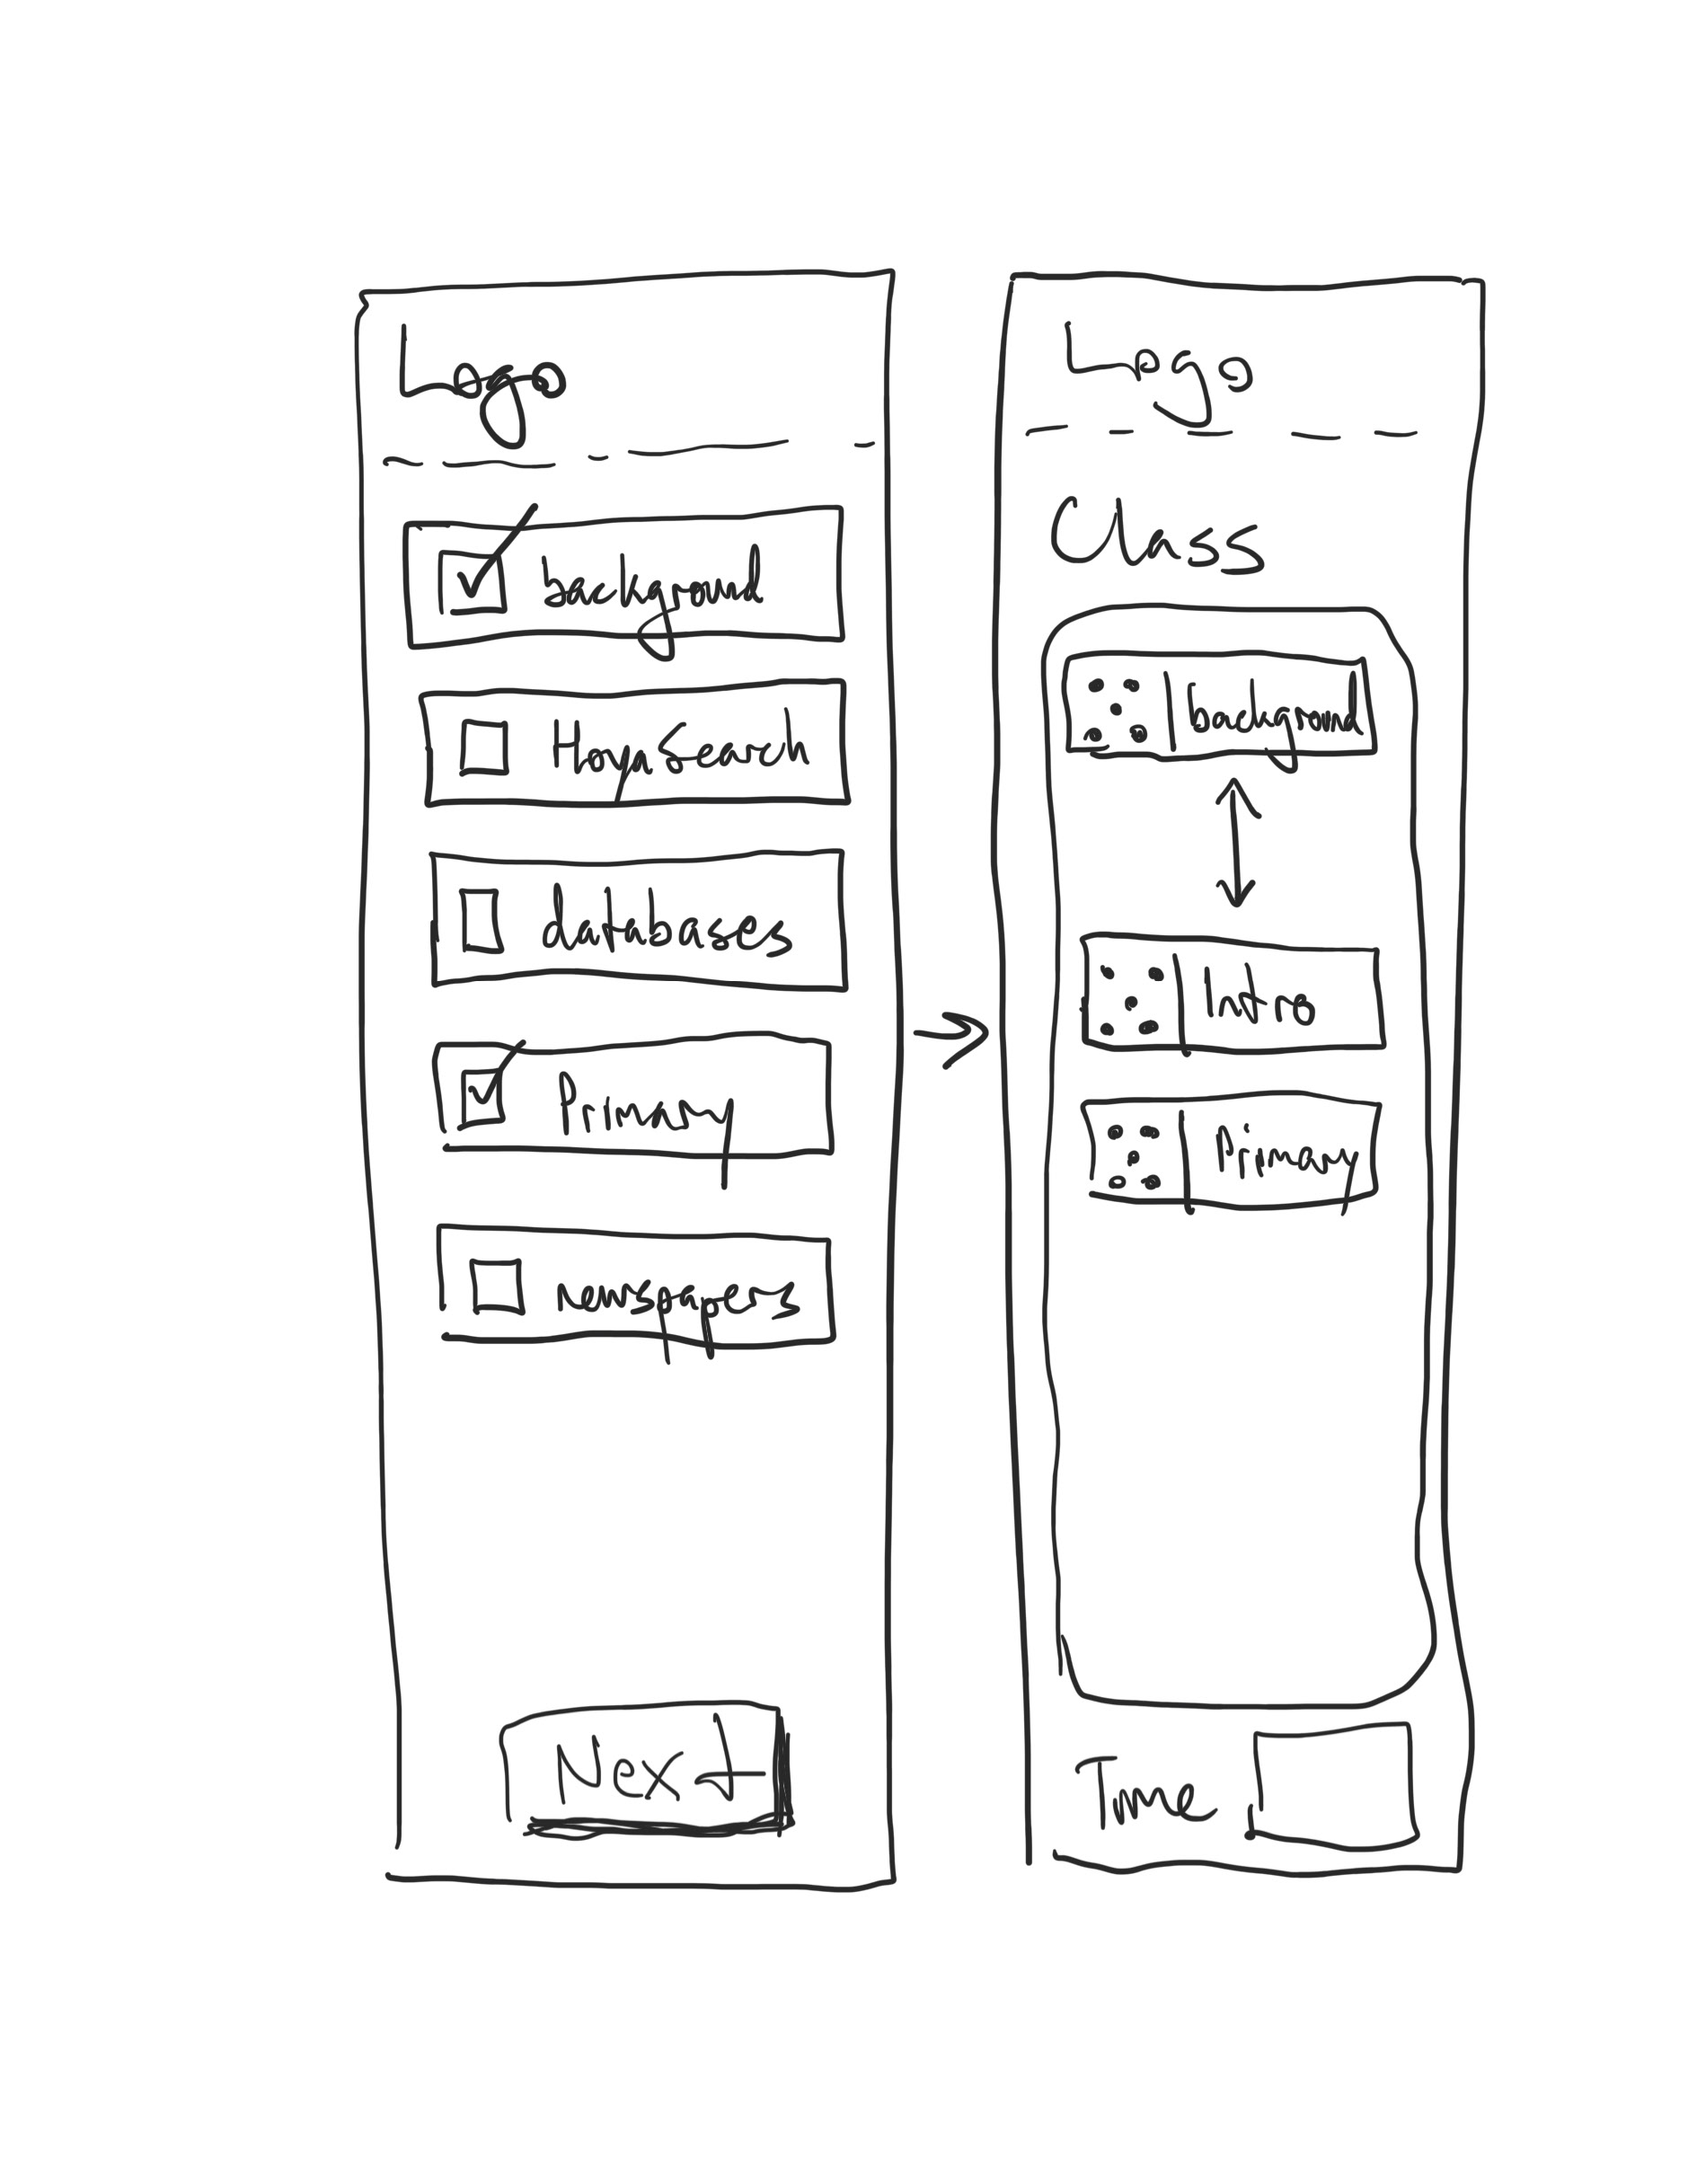 Logo
background
How Search
databases
Primary
newspapers
Next
Logo
Class
background
Intro
Primary
Time